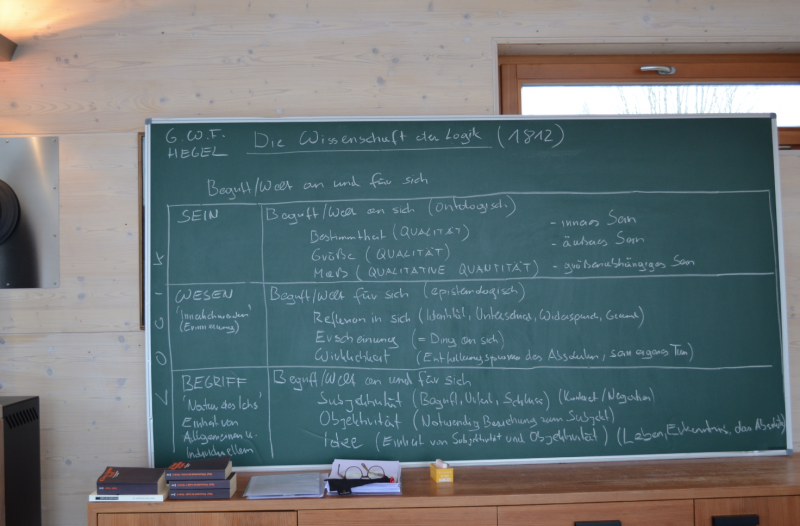 G.W.F. HEGEL
Die Wissenschaft der Logik (1812)
Begriff/Welt an und für sich
SEIN
Begriff/Welt an sich (Ontologisch)
Bestimmtheit (QUALITÄT) - inneres Sein
Größe (QUALITÄT) - äußeres Sein
Maß (QUALITATIVE QUANTITÄT) - größenabhängiges Sein
WESEN
(Erinnerung)
Begriff/Welt für sich (epistemologisch)
Reflexion in sich (Identität, Unterschied, Widerspruch, Grund)
Erscheinung (= Ding an sich)
Wirklichkeit (Entfaltungsprozess des Absoluten, sein eigenes Tun)
BEGRIFF
'Natur des Ichs'
Einheit von
Allgemeinem u.
Individuellem
Begriff/Welt an und für sich
Subjektivität (Begriff, Urteil, Schluss) (Kontrast/Negation)
Objektivität (Notwendige Beziehung zum Subjekt)
Idee (Einheit von Subjektivität und Objektivität) (Leben, Erkenntnis, das Absolute)